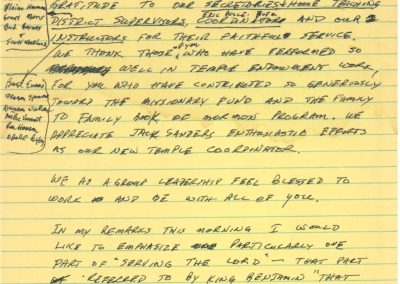 GRATITUDE TO OUR SECRETARIES & HOME TEACHING
DISTRICT SUPERVISORS, COORDINATORS AND OUR 2
INSTRUCTORS FOR THEIR FAITHFUL SERVICE.
WE THANK THOSE of you WHO HAVE PERFORMED SO
WELL IN TEMPLE ENDOWMENT WORK,
FOR YOU WHO HAVE CONTRIBUTED SO GENEROUSLY
TOWARD THE MISSIONARY FUND AND THE FAMILY
TO FAMILY BOOK OF MORMON PROGRAM. WE
APPRECIATE JACK SANDERS ENTHUSIASTIC EFFORTS
AS OUR NEW TEMPLE COORDINATOR.
WE AS A GROUP LEADERSHIP FEEL BLESSED TO
WORK AND BE WITH ALL OF YOU.
IN MY REMARKS THIS MORNING I WOULD
LIKE TO EMPHASIZE PARTICULARLY ONE
PART OF "SERVING THE LORD" — THAT PART
REFERRED TO BY KING BENJAMIN "THAT